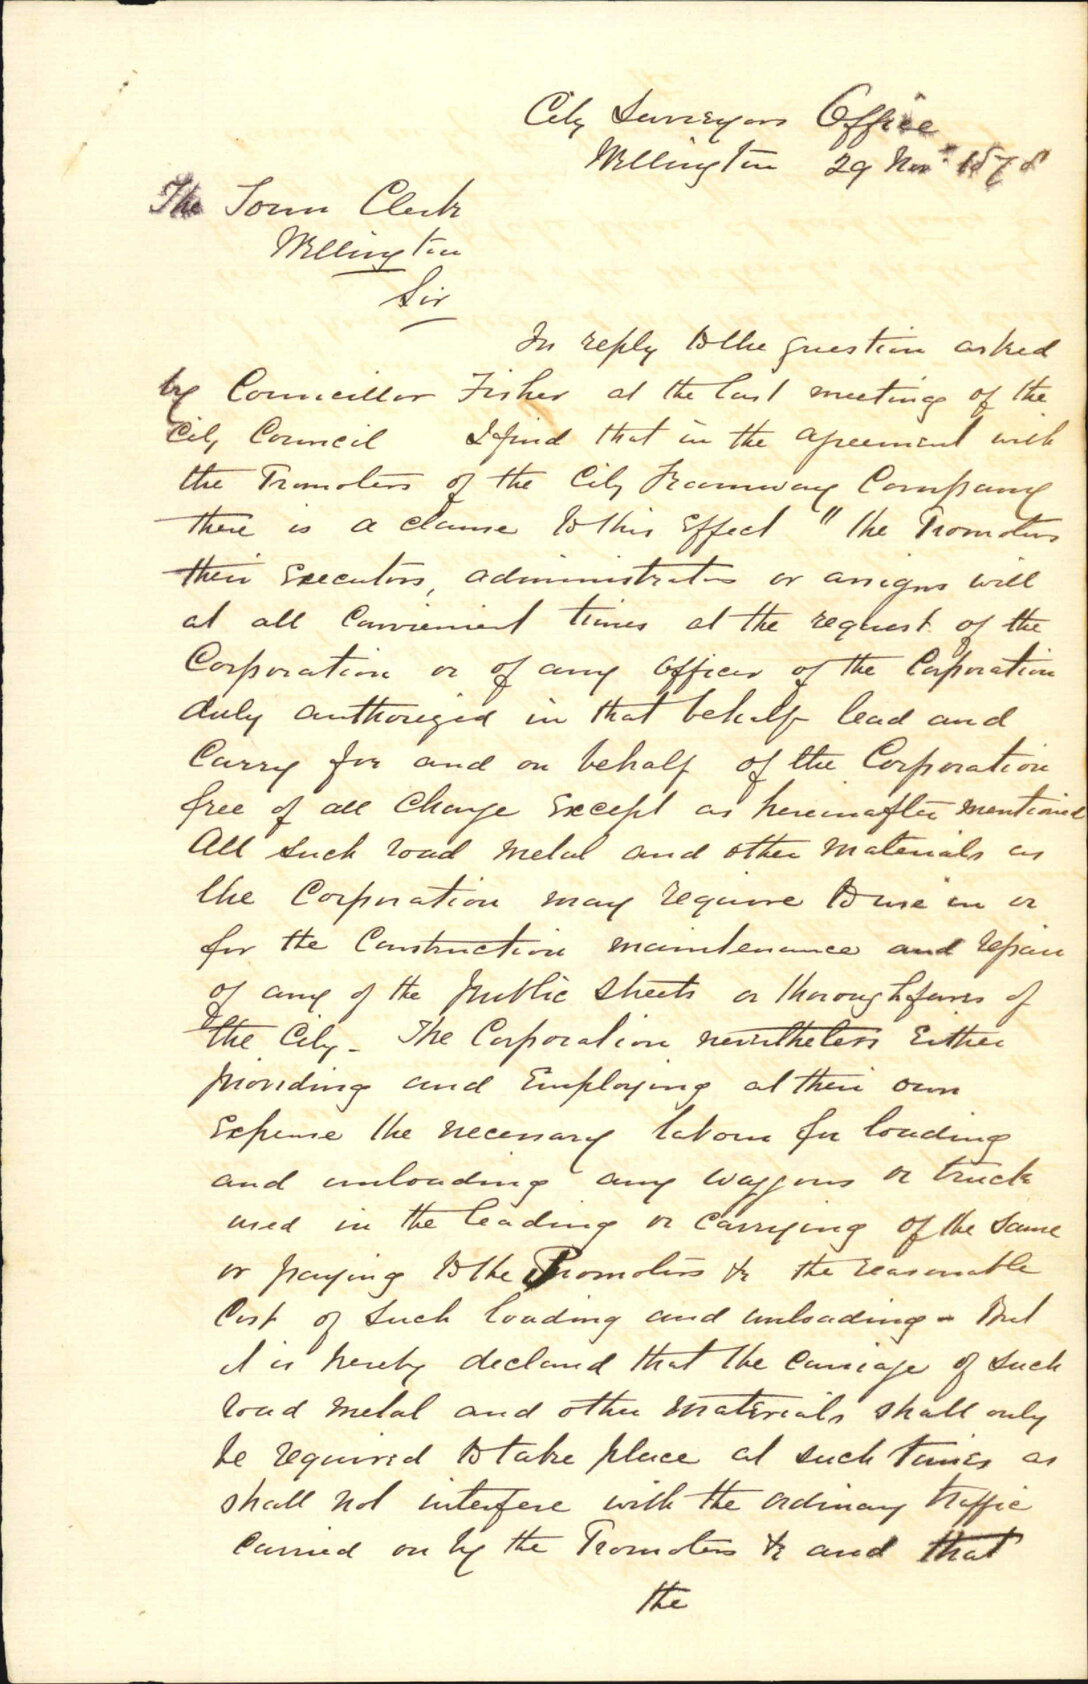 City Surveyors Office
Wellington 29 Nov. 1878
The Town Clerk
Wellington
Sir
In reply to the question asked
by Councillor Fisher at the last meeting of the
City Council I find that in the agreement with
the Promoters of the City Tramway Company
there is a clause to this Effect " the Promoters
their Executors, administrators or assigns will
at all convenient times at the request of the
Corporation or of any officer of the Corporation
duly authorized in that behalf lead and
Carry for and on behalf of the Corporation
free of all Charge Except as hereinafter mentioned
All such road metal and other materials as
the Corporation may require to use in or
for the Construction maintenance and repair
of any of the public streets or thoroughfares of
the City - The Corporation nevertheless Either
providing and Employing at their own
Expense the necessary labour for loading
and unloading any waggons or truck
used in the leading or carrying of the same
or paying to the Promoters &c the reasonable
Cost of such loading and unloading - But
it is hereby declared that the carriage of such
road metal and other materials shall only
be required to take place at such times as
shall not interfere with the ordinary traffic
carried on by the Promoters &c and that
the